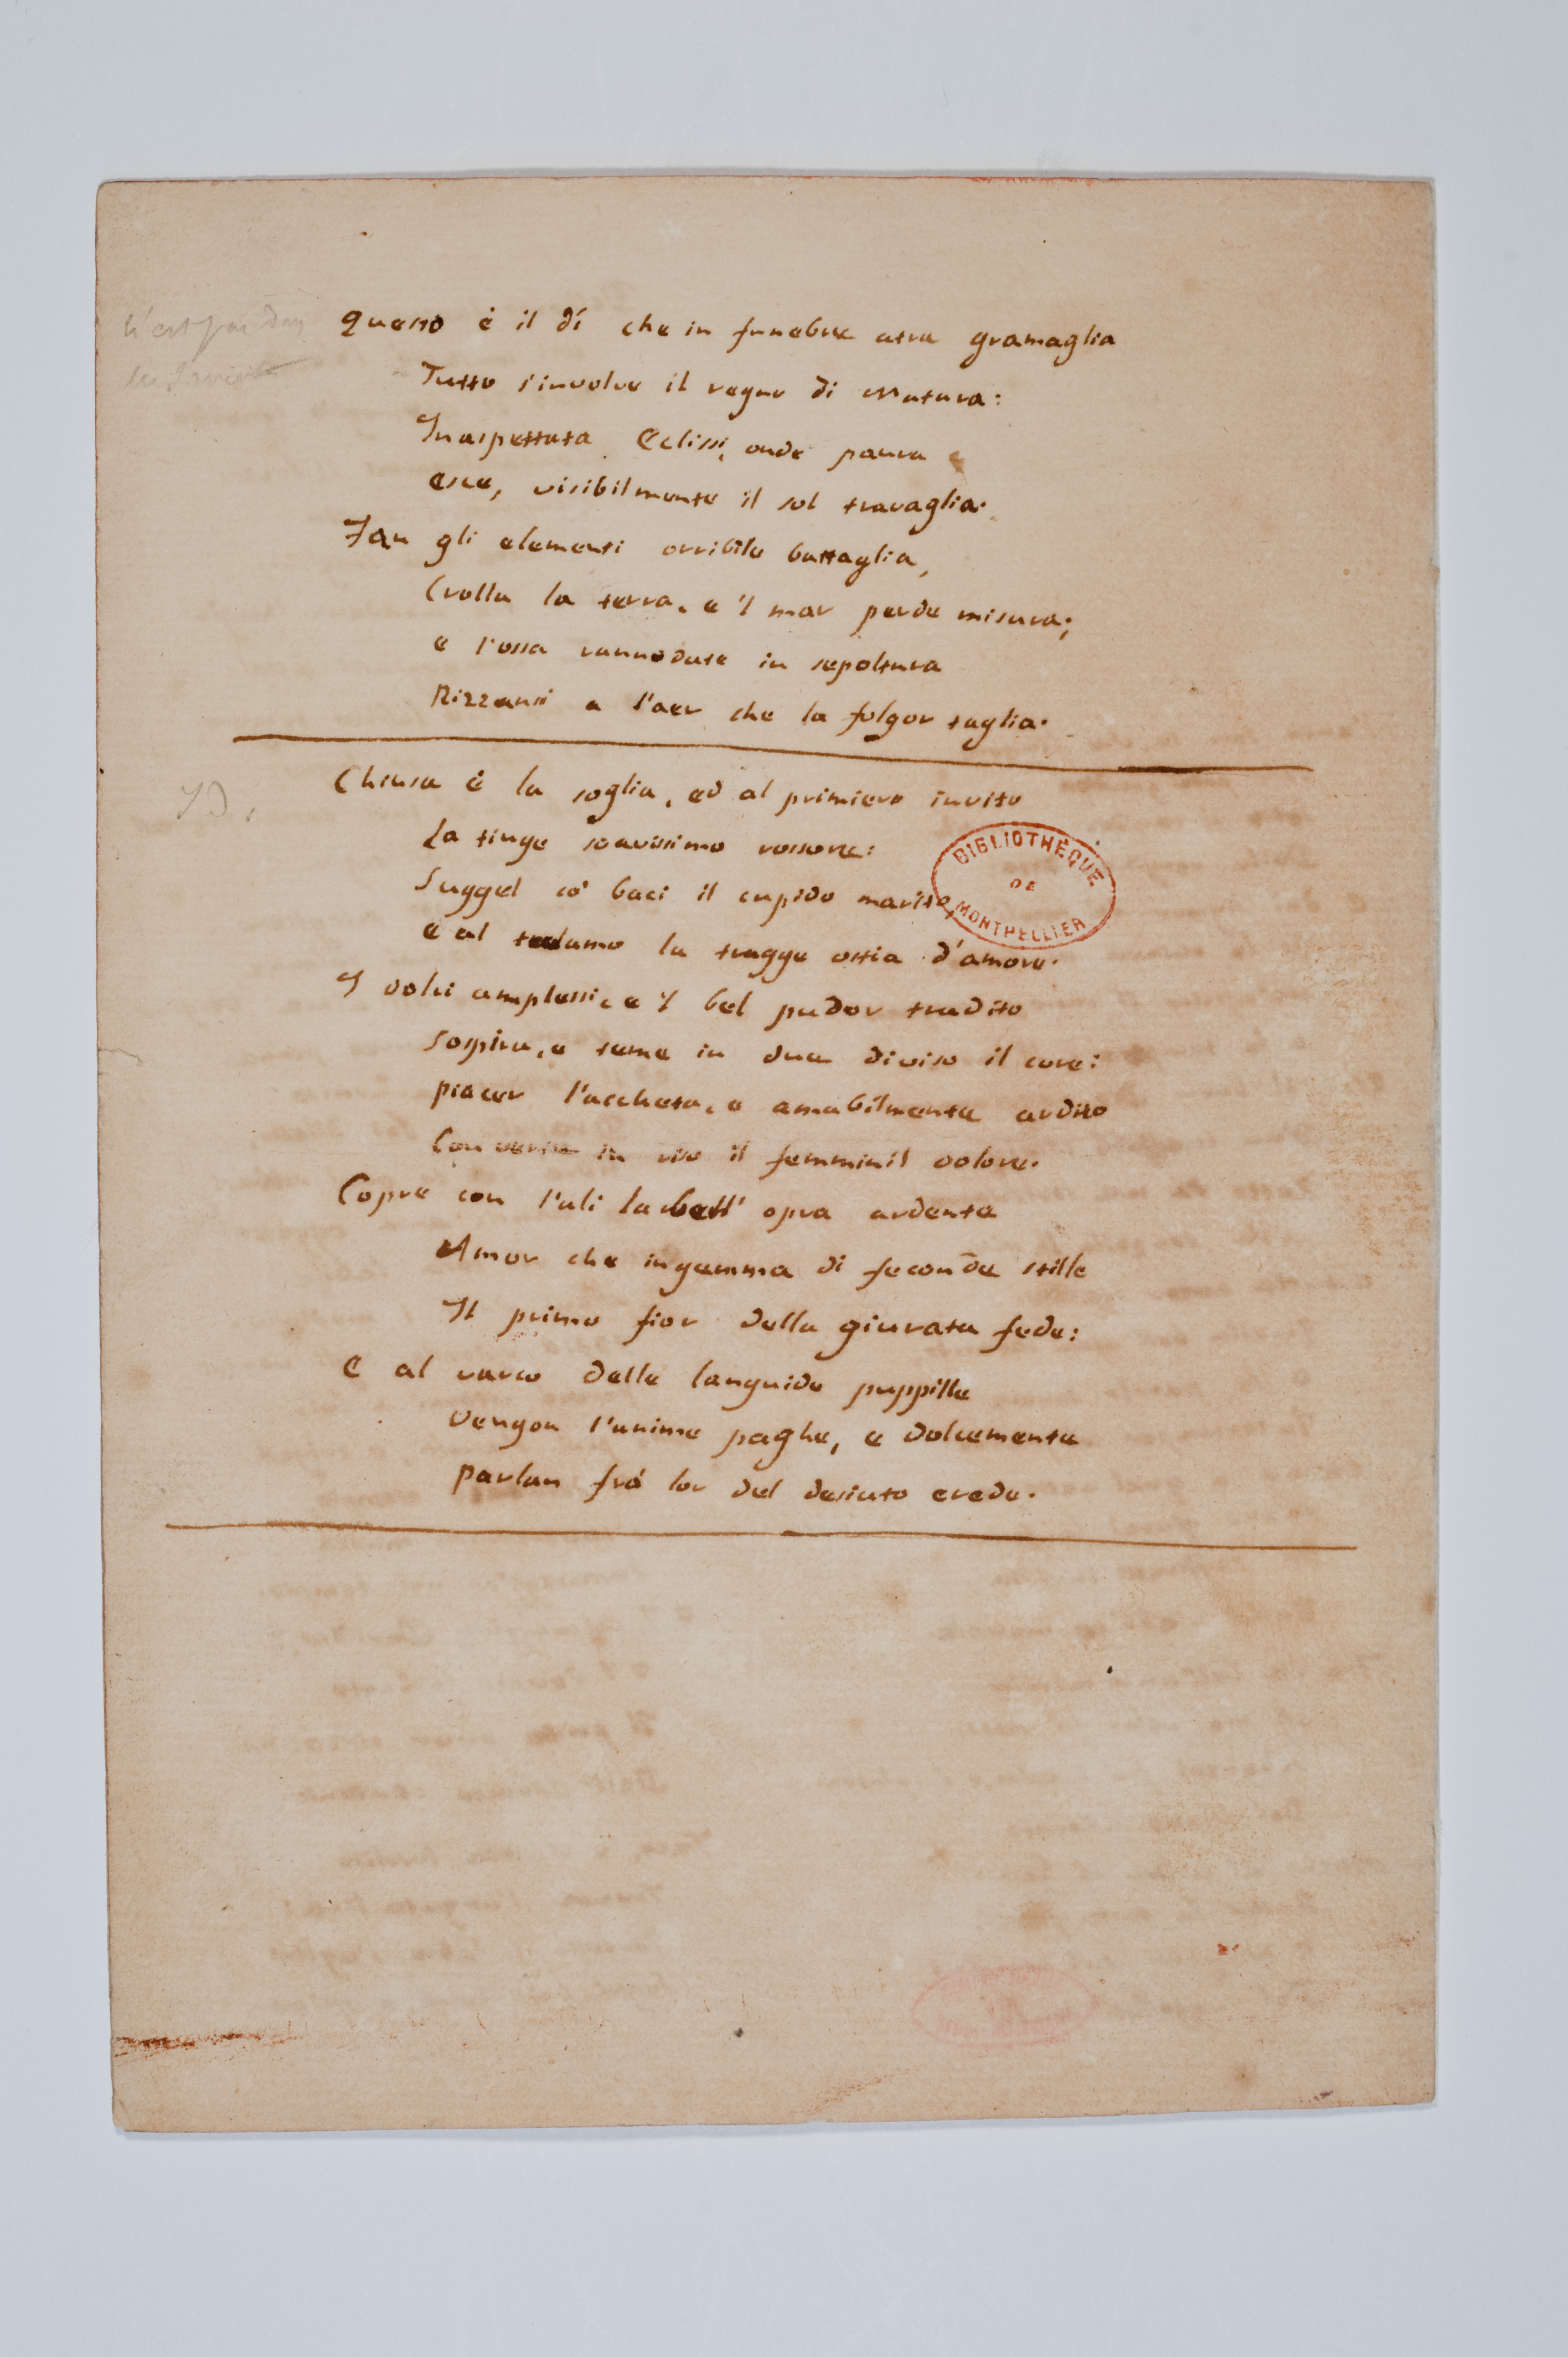 n'est pas dans
Questo è il dí che in funebre atra gramaglia
Tutto s'involve il regno di Natura:
Inaspettata Eclissi, onde paura
esce, visibilmente il sol travaglia.
Fan gli elementi orribile battaglia,
Crolla la terra, e 'l mar perde misura;
e l'ossa rannodate in sepoltura
Rizzansi a l'aer che la folgor taglia.
Id.
Chiusa è la soglia, ed al primiero invito
La tinge soavissimo rossore:
Suggel co' baci il cupido marito,
e al talamo la tragge ostia d'amore.
I dolci amplessi, e 'l bel pudor tradito
sospira, e teme in due diviso il core:
piacer l'accheta, e amabilmente ardito
Converte in riso il femminil dolore.
Copre con l'ali la bell' opra ardente
Amor che ingemma di feconde stille
Il primo fior della giurata fede:
E al varco delle languide puppille
Vengon l'anime paghe, e dolcemente
parlan frá lor del desiato erede.
BIBLIOTHÈQUE
DE
MONTPELLIER